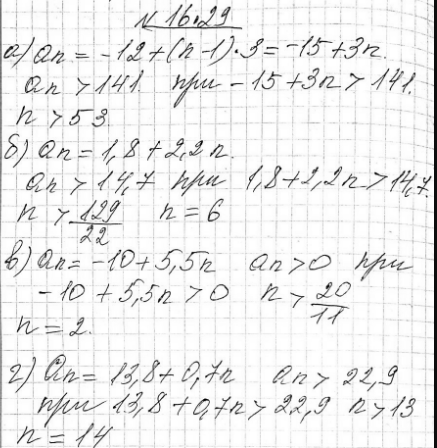 № 16.29
а) an = -12 + (n-1)·3 = -15 + 3n.
an > 141 при -15 + 3n > 141.
n > 53.
б) an = 1,8 + 2,2n.
an > 14,7 при 1,8 + 2,2n > 14,7.
n > 129/22 n = 6
в) an = -10 + 5,5n an > 0 при
-10 + 5,5n > 0 n > 20/11
n = 2.
г) an = 13,8 + 0,7n an > 22,9
при 13,8 + 0,7n > 22,9 n > 13
n = 14